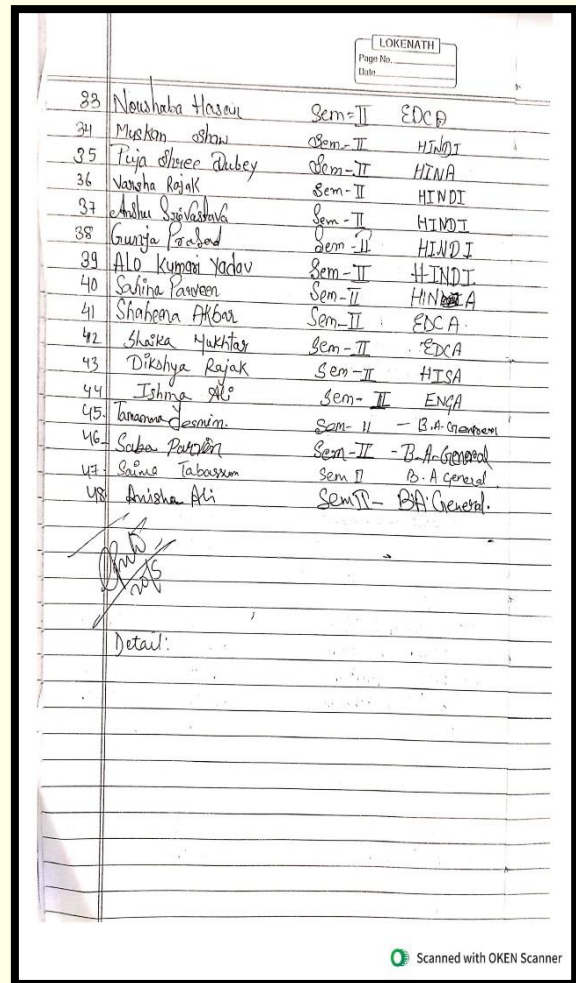 LOKENATH
Page No.
Date
33 Noushaba Hasein Sem-II EDCA
34 Muskan Shaw Sem-II HINDI
35 Puja Shree Dubey Sem-II HINA
36 Varsha Rajak Sem-II HINDI
37 Anshu Srivastava Sem-II HINDI
38 Gunja Prasad Sem-II HINDI
39 ALO Kumari Yadav Sem-II HINDI
40 Sahina Parveen Sem-II HINA
41 Shaheena Akbar Sem-II EDCA
42 Shaika Mukhtar Sem-II EDCA
43 Dikshya Rajak Sem-II HISA
44 Ishma Ali Sem-II ENGA
45. Tamanna Jesmin. Sem-II - B.A-
46. Saba Parvin Sem-II - B.A-General
47. Saima Tabassum Sem II B.A General
48 Anisha Ali Sem II - BA General.
Detail:
Scanned with OKEN Scanner